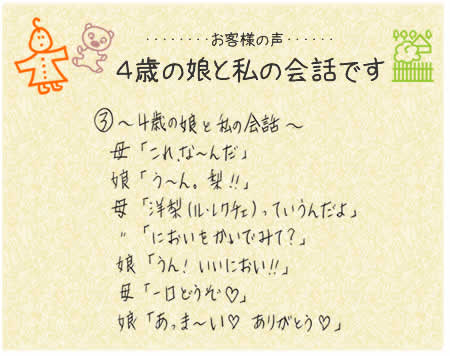 ········お客様の声······
4歳の娘と私の会話です
③～4歳の娘と私の会話～
母「これ、な～んだ」
娘「う～ん。梨!!」
母「洋梨(ル・レクチェ)っていうんだよ」
〃「においをかいでみて？」
娘「うん！いいにおい!!」
母「一口どうぞ♡」
娘「あっま～い♡ ありがとう♡」